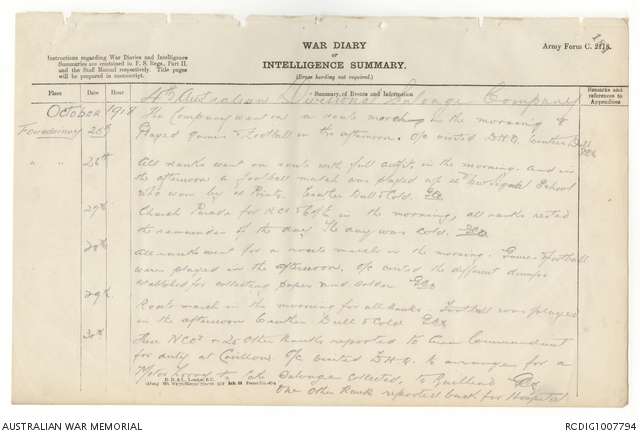 WAR DIARY
OR
INTELLIGENCE SUMMARY.
(Erase heading not required.)
Army Form C. 2118.
Instructions regarding War Diaries and Intelligence
Summaries are contained in F. S. Regs., Part II.
and the Staff Manual respectively. Title pages
will be prepared in manuscript.
Place
Date
Hour
Summary of Events and Information
Remarks and
references to
Appendices
4th Australian Divisional Salvage Company
October 1918
25th
The Company went on a route march in the morning &
played games & Football in the afternoon. O/c visited D.H.Q. Weather Dull
" " 26th
All ranks went on route with full outfit, in the morning. And in
the afternoon a football match was played against Signal School
who won by points. Weather Dull & Cold.
27th
Church Parade for R.C's & CofE in the morning, all ranks rested
the remainder of the day. The day was cold.
28th
All ranks went for a route march in the morning. Games & Football
were played in the afternoon, O/c visited the different dumps
established for collecting paper and solder
29th
Route march in the morning for all Ranks. Football was played
in the afternoon Weather Dull & Cold
30th
NCO's & 20 Other Ranks reported to Area Commandant
for duty at O/c visited D.H.Q. to arrange for a
Motor Lorry to take Salvage collected, to
One Other Rank reported back from Hospital
AUSTRALIAN WAR MEMORIAL
RCDIG1007794